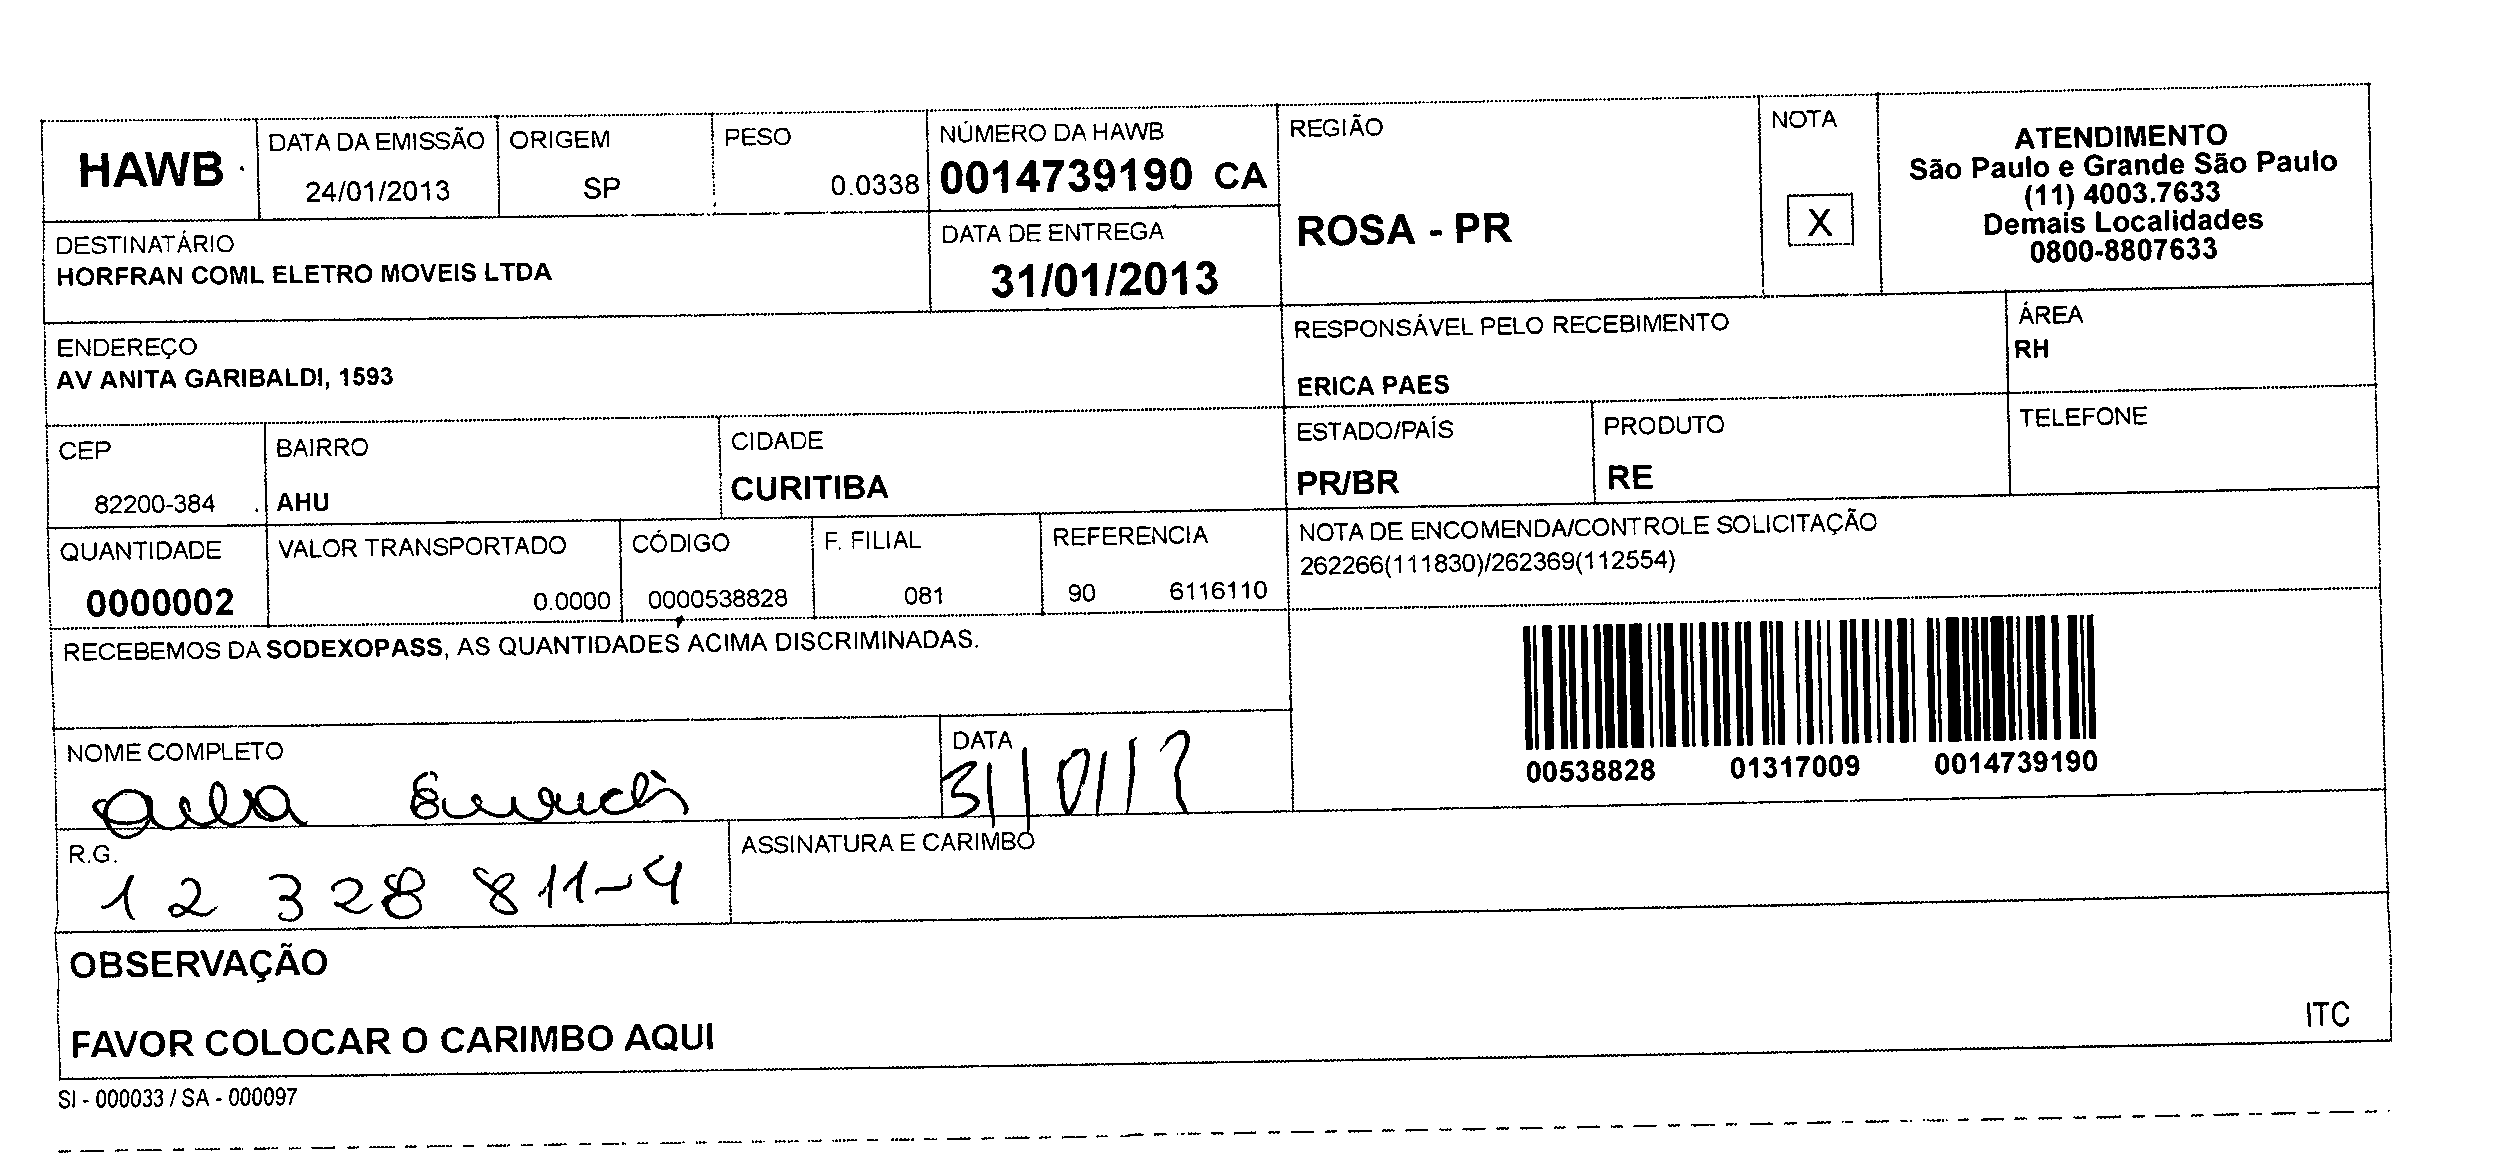 HAWB
DATA DA EMISSÃO
24/01/2013
ORIGEM
SP
PESO
0.0338
NÚMERO DA HAWB
0014739190 CA
REGIÃO
ROSA - PR
NOTA
X
ATENDIMENTO
São Paulo e Grande São Paulo
(11) 4003.7633
Demais Localidades
0800-8807633
DESTINATÁRIO
HORFRAN COML ELETRO MOVEIS LTDA
DATA DE ENTREGA
31/01/2013
ENDEREÇO
AV ANITA GARIBALDI, 1593
RESPONSÁVEL PELO RECEBIMENTO
ERICA PAES
ÁREA
RH
CEP
82200-384
BAIRRO
AHU
CIDADE
CURITIBA
ESTADO/PAÍS
PR/BR
PRODUTO
RE
TELEFONE
QUANTIDADE
0000002
VALOR TRANSPORTADO
0.0000
CÓDIGO
0000538828
F. FILIAL
081
REFERENCIA
90 6116110
NOTA DE ENCOMENDA/CONTROLE SOLICITAÇÃO
262266(111830)/262369(112554)
RECEBEMOS DA SODEXOPASS, AS QUANTIDADES ACIMA DISCRIMINADAS.
00538828 01317009 0014739190
NOME COMPLETO
DATA
31/01/
R.G.
12 328 811-4
ASSINATURA E CARIMBO
OBSERVAÇÃO
FAVOR COLOCAR O CARIMBO AQUI
ITC
SI - 000033 / SA - 000097